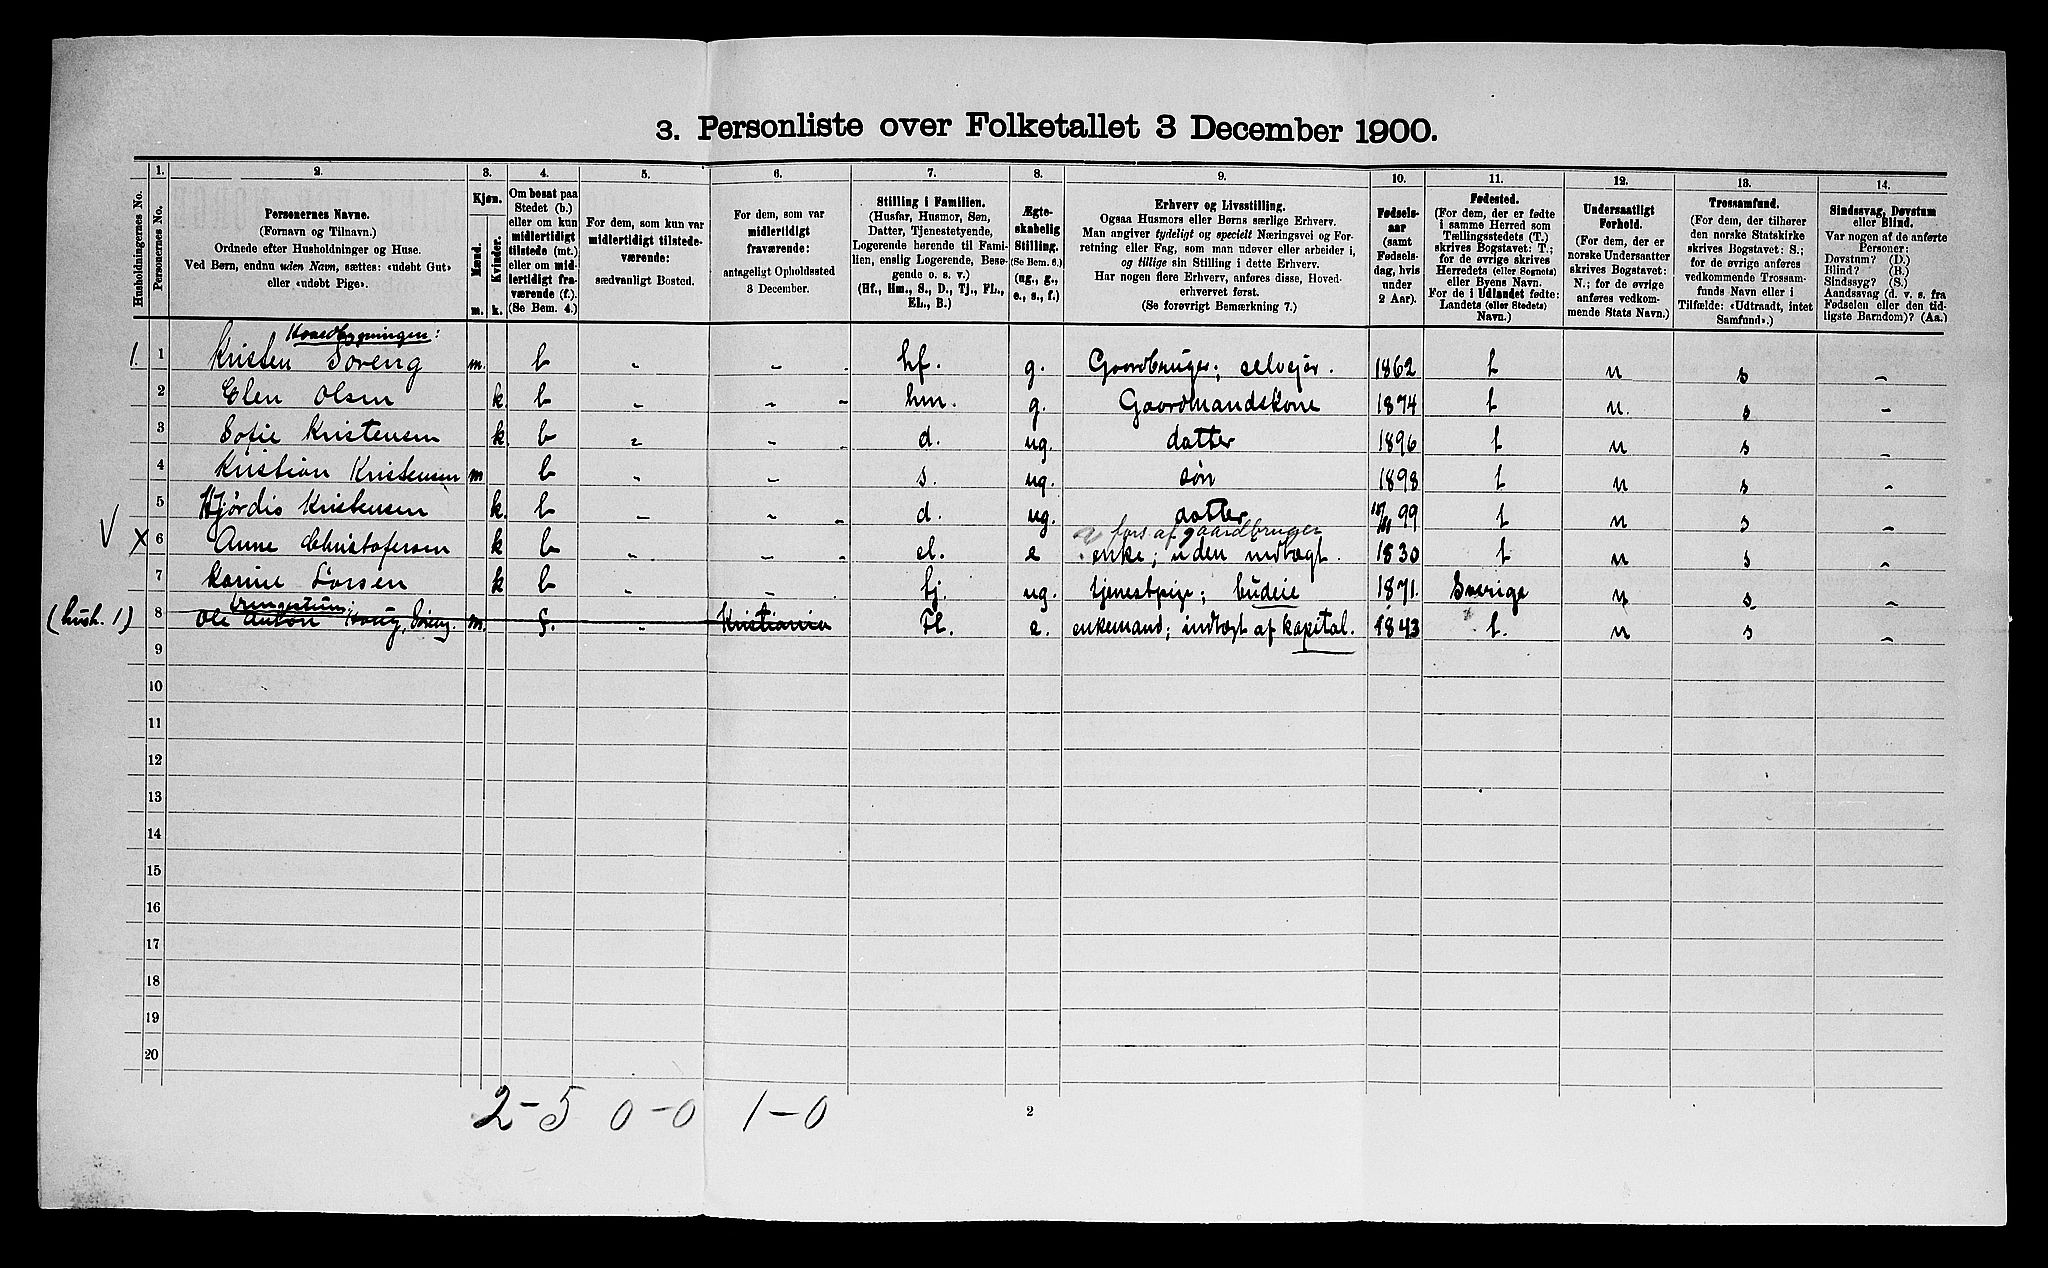 3. Personliste over Folketallet 3 December 1900.
Husholdningernes No.
1. Personernes No.
2. Personernes Navne.
(Fornavn og Tilnavn.)
Ordnede efter Husholdninger og Huse.
Ved Børn, endnu uden Navn, sættes: «udøbt Gut»
eller «udøbt Pige».
3. Kjøn.
Mænd. m.
Kvinder. k.
4.
Om bosat paa
Stedet (b.)
eller om kun
midlertidigt
tilstede (mt.)
eller om mid-
lertidigt fra-
værende (f.).
(Se Bem. 4.)
5.
For dem, som kun var
midlertidigt tilstede-
værende:
sædvanligt Bosted.
6.
For dem, som var
midlertidigt
fraværende:
antageligt Opholdssted
3 December.
7.
Stilling i Familien.
(Husfar, Husmor, Søn,
Datter, Tjenestetyende,
Logerende hørende til Fami-
lien, enslig Logerende, Besø-
gende o. s. v.)
(Hf., Hm., S., D., Tj., FL.,
EL., B.)
8.
Ægte-
skabelig
Stilling.
(Se Bem. 6.)
(ug., g.,
e., s., f.)
9.
Erhverv og Livsstilling.
Ogsaa Husmors eller Børns særlige Erhverv.
Man angiver tydeligt og specielt Næringsvei og For-
retning eller Fag, som man udøver eller arbeider i,
og tillige sin Stilling i dette Erhverv.
Har nogen flere Erhverv, anføres disse, Hoved-
erhvervet først.
(Se forøvrigt Bemærkning 7.)
10.
Fødsels-
aar
(samt
Fødsels-
dag, hvis
under
2 Aar).
11.
Fødested.
(For dem, der er fødte
i samme Herred som
Tællingsstedets (T.)
skrives Bogstavet: T.;
for de øvrige skrives
Herredets (eller Sognets)
eller Byens Navn.
For de i Udlandet fødte:
Landets (eller Stedets)
Navn.)
12.
Undersaatligt
Forhold.
(For dem, der er
norske Undersaatter
skrives Bogstavet:
N.; for de øvrige
anføres vedkom-
mende Stats Navn.)
13.
Trossamfund.
(For dem, der tilhører
den norske Statskirke
skrives Bogstavet: S.;
for de øvrige anføres
vedkommende Trossam-
funds Navn eller i
Tilfælde: «Udtraadt, intet
Samfund».)
14.
Sindssvag, Døvstum
eller Blind.
Var nogen af de anførte
Personer:
Døvstum? (D.)
Blind? (B.)
Sindssyg? (S.)
Aandssvag (d. v. s. fra
Fødselen eller den tid-
ligste Barndom)? (Aa.)
Hovedbygningen:
1. 1 Kristen Soreng m. b - - hf. g. Gaardbruger; selveier. 1862 t n s -
2 Elen Olsen k. b - - hm. g. Gaardmandskone 1874 t n. s -
3 Sofie Kristensen k. b - - d. ug. datter 1896 t n s -
4 Kristian Kristensen m b - - s. ug. søn 1898 t n s -
5 Hjørdis Kristensen k. b - - d. ug. datter 99 t n s -
fors af gaardbruger
V x 6 Anne Christofersen k b - - el. e enke; uden indtægt. 1830 t n s -
7 Karine Larsen k b - - tj. ug. tjenestpige; budeie 1871. Sverige n s -
(hush. 1) 8 Ole Anton Haug, Soreng. m. f. - Kristiania Fl. e. enkemand; indtægt af kapital. 1843 t. n s -
9
10
11
12
13
14
15
16
17
18
19
20
2-5 0-0 1-0
2